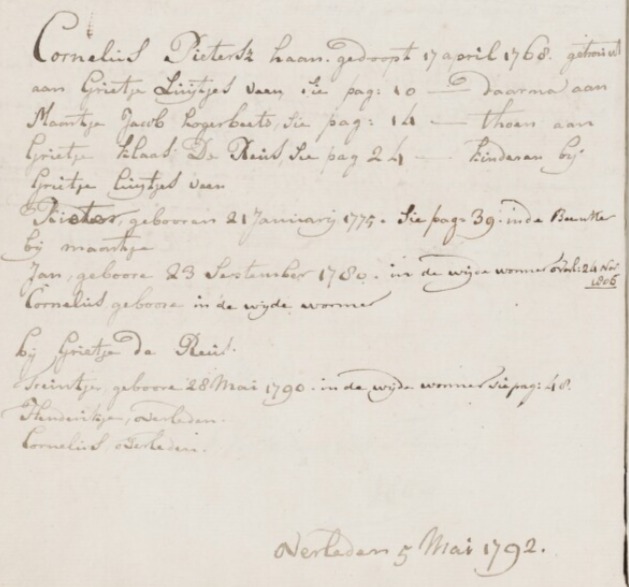 Cornelius Pietersz haan. gedoopt 17 april 1768. getrouwt
aan Grietje Luijtjes veen, sie pag: 10 — daarna aan
Maartje Jacob hogerbeets, sie pag: 14 — thoen aan
Grietje Klaas De Reus, sie pag 24 — kinderen bij
Grietje luijtjes veen
Pieter, gebooren 21 Januarij 1775. sie pag: 39. in de Beemster
bij maartje
Jan, geboore 23 September 1780. in de wijde wormer overl: 24 Nov
1806
Cornelius, geboore in de wijde wormer
bij Grietje de Reus.
Treintje, geboore 28 Mai 1790. in de wijde wormer sie pag: 48.
Hendrikje, overleden.
Cornelius, overleden.
overleden 5 Mai 1792.